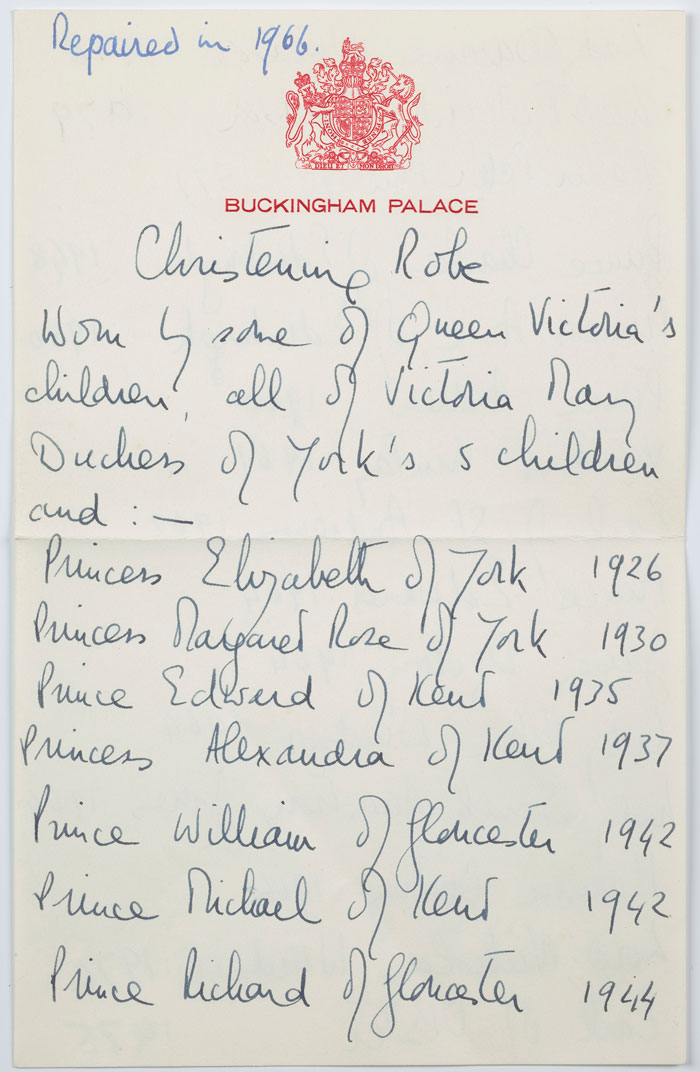 Repaired in 1966.
DIEU ET MON DROIT
BUCKINGHAM PALACE
Christening Robe
Worn by some of Queen Victoria's
children, all of Victoria Mary
Duchess of York's 5 children
and : —
Princess Elizabeth of York 1926
Princess Margaret Rose of York 1930
Prince Edward of Kent 1935
Princess Alexandra of Kent 1937
Prince William of Gloucester 1942
Prince Michael of Kent 1942
Prince Richard of Gloucester 1944